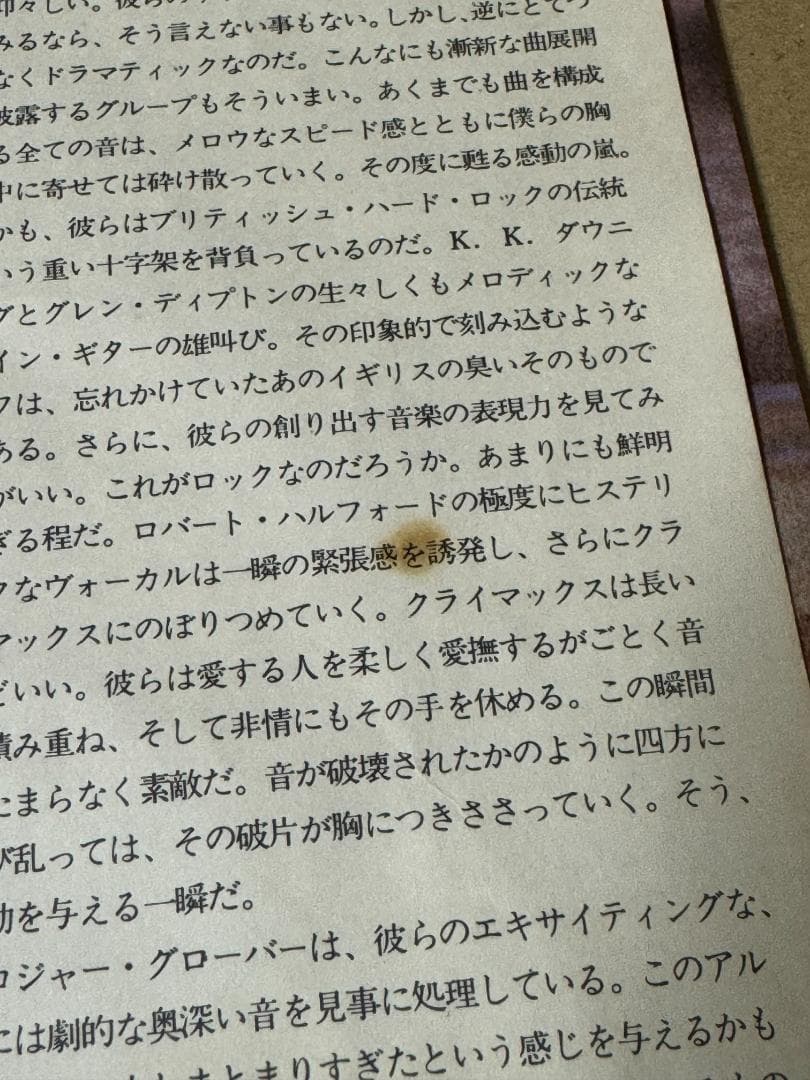 々しい。彼らの
みるなら、そう言えない事もない。しかし、逆にとてつ
なくドラマティックなのだ。こんなにも漸新な曲展開
披露するグループもそういまい。あくまでも曲を構成
る全ての音は、メロウなスピード感とともに僕らの胸
中に寄せては砕け散っていく。その度に甦る感動の嵐。
かも、彼らはブリティッシュ・ハード・ロックの伝統
いう重い十字架を背負っているのだ。K．K．ダウニ
グとグレン・ディプトンの生々しくもメロディックな
イン・ギターの雄叫び。その印象的で刻み込むような
フは、忘れかけていたあのイギリスの臭いそのもので
ある。さらに、彼らの創り出す音楽の表現力を見てみ
がいい。これがロックなのだろうか。あまりにも鮮明
ぎる程だ。ロバート・ハルフォードの極度にヒステリ
クなヴォーカルは一瞬の緊張感を誘発し、さらにクラ
マックスにのぼりつめていく。クライマックスは長い
どいい。彼らは愛する人を柔しく愛撫するがごとく音
積み重ね、そして非情にもその手を休める。この瞬間
たまらなく素敵だ。音が破壊されたかのように四方に
び乱っては、その破片が胸につきささっていく。そう、
動を与える一瞬だ。
ロジャー・グローバーは、彼らのエキサイティングな、
には劇的な奥深い音を見事に処理している。このアル
まとまりすぎたという感じを与えるかも